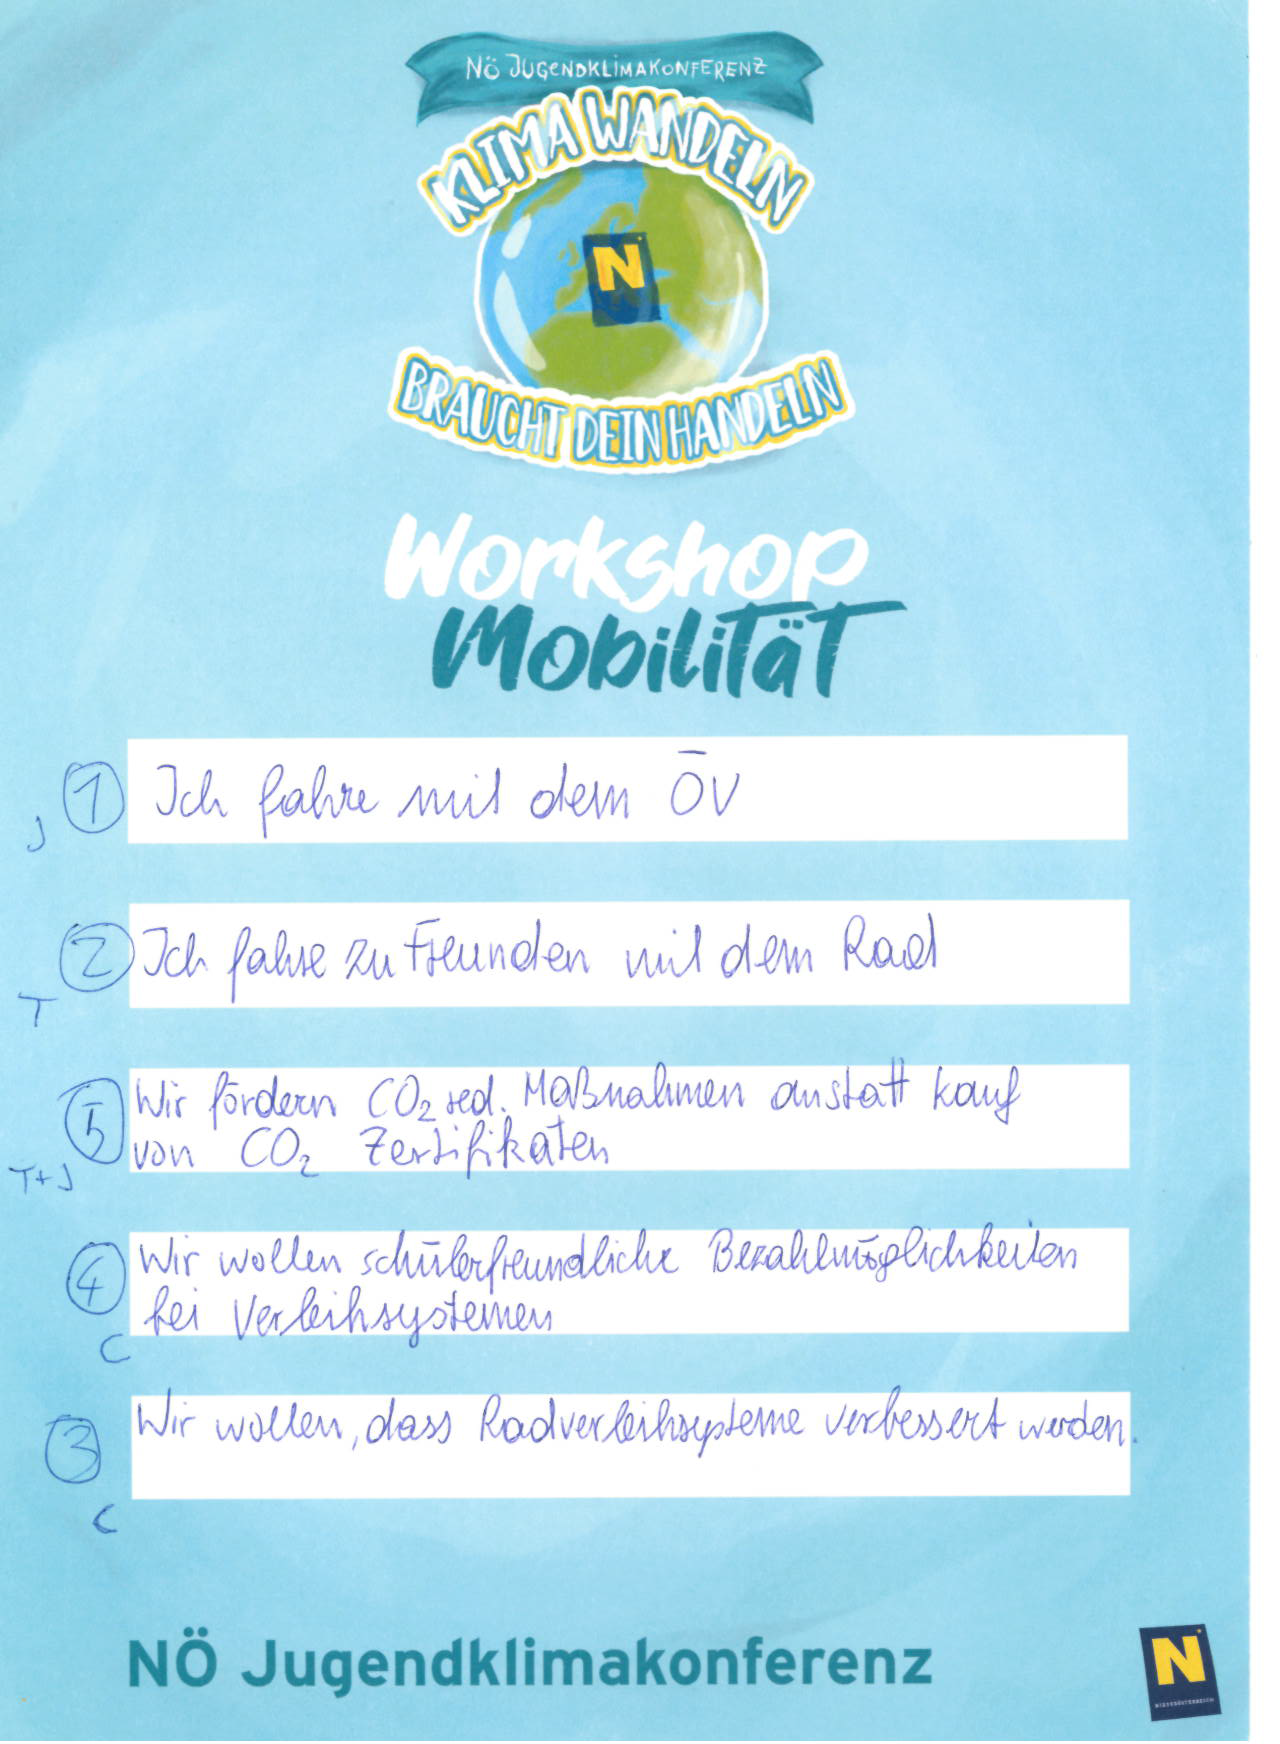 NÖ JUGENDKLIMAKONFERENZ
KLIMA WANDELN
N
BRAUCHT DEIN HANDELN
Workshop
Mobilität
1 Ich fahre mit dem ÖV
J
2 Ich fahre zu Freunden mit dem Rad
T
5 Wir fördern CO2 red. Maßnahmen anstatt kauf
von CO2 Zertifikaten
T+J
4 Wir wollen schülerfreundliche Bezahlmöglichkeiten
bei Verleihsystemen
C
3 Wir wollen, dass Radverleihsysteme verbessert werden.
C
NÖ Jugendklimakonferenz
N
NIEDERÖSTERREICH